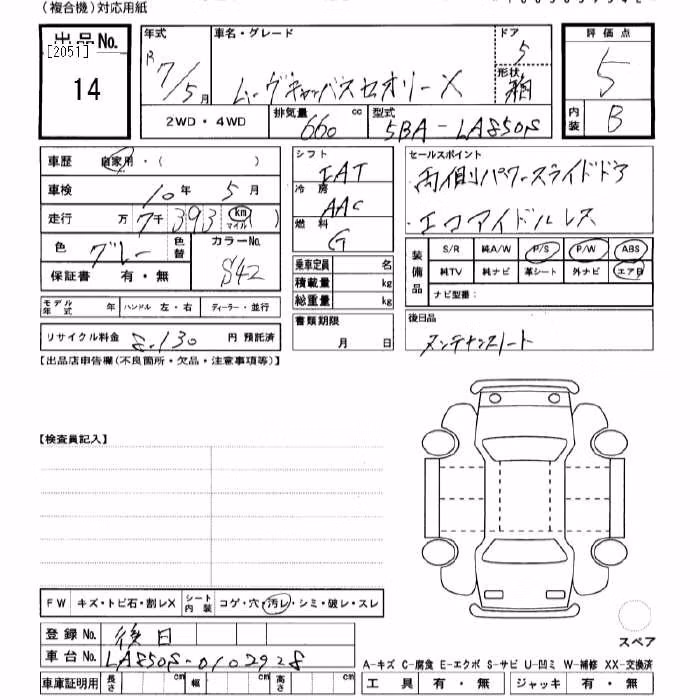 (複合機)対応用紙
出品No.
[2051]
14
年式
R7/5月
車名・グレード
ムーヴキャンバスセオリーX
ドア
5
形状
箱
評価点
5
内装
B
2WD・4WD
排気量
660
cc
型式
5BA-LA850S
車歴
自家用・( )
車検
10年 5月
走行
万 7千 393 km マイル )
色
グレー
色替
カラーNo.
S42
保証書 有・無
モデル年式 年
ハンドル 左・右
ディーラー・並行
リサイクル料金 8.130 円 預託済
シフト
IAT
冷房
AAC
燃料
G
乗車定員 名
積載量 kg
総重量 kg
書類期限
月 日
セールスポイント
両側パワースライドドア
エコアイドルレス
装備品
S/R 純A/W P/S P/W ABS
純TV 純ナビ 革シート 外ナビ エアB
ナビ型番:
後日品
メンテナンスノート
【出品店申告欄(不良箇所・欠品・注意事項等)】
【検査員記入】
FW キズ・トビ石・割レX
シート内装 コゲ・穴・汚レ・シミ・破レ・スレ
登録No. 後日
車台No. LA850S-0102928
車庫証明用 長さ cm 幅 cm 高さ cm
スペア
A-キズ C-腐食 E-エクボ S-サビ U-凹ミ W-補修 XX-交換済
工具 有・無 ジャッキ 有・無